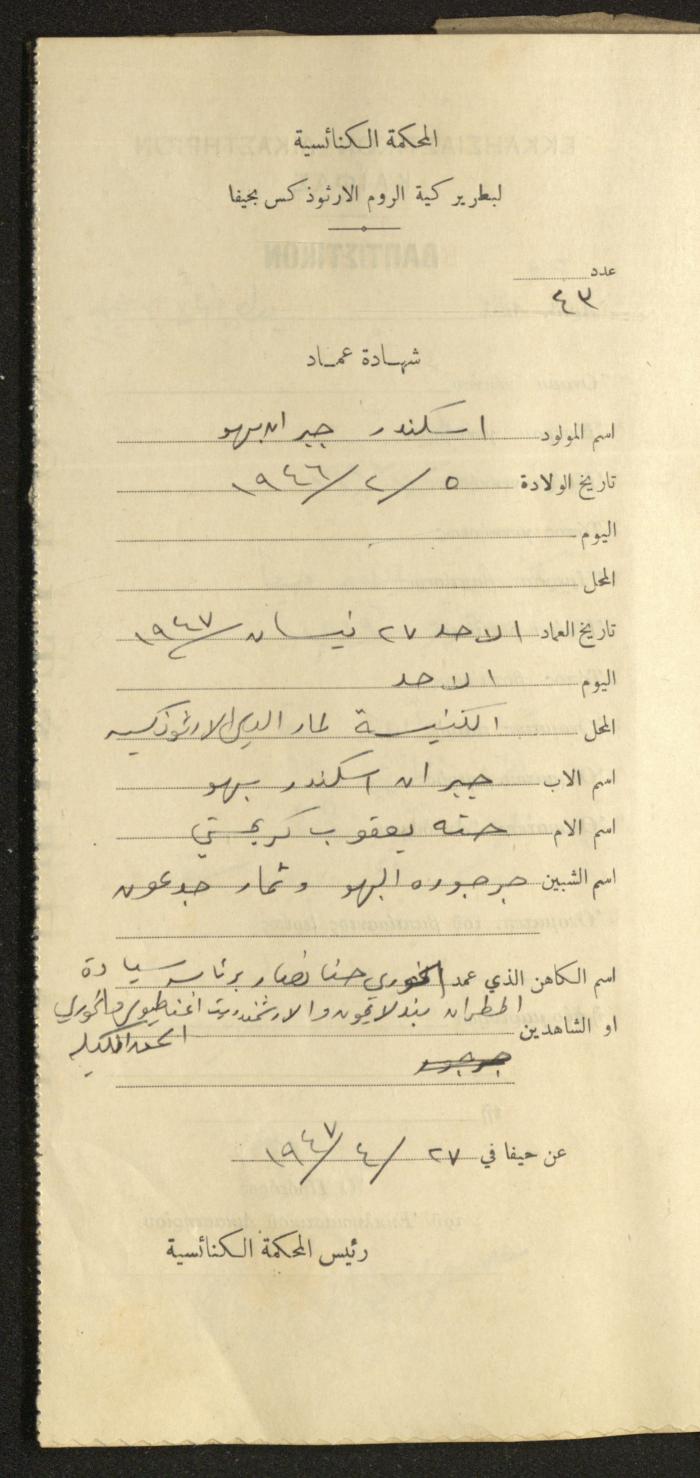 المحكمة الكنائسية
لبطريركية الروم الارثوذكس بحيفا
عدد
٤٣
شهادة عماد
اسم المولود اسكندر جبران بهو
تاريخ الولادة ٥ / ٢ / ١٩٤٦
اليوم
المحل
تاريخ العماد الاحد ٢٧ نيسان ١٩٤٧
اليوم الاحد
المحل الكنيسة لمار الياس الارثوذكسيه
اسم الاب جبران اسكندر بهو
اسم الام حنه يعقوب
اسم الشبين جرجوره البهو وثمار جدعون
اسم الكاهن الذي عمد الخوري حنا نصار برئاسة سيادة
المطران والارشمندريت اغناطيوس والخوري
او الشاهدين
عن حيفا في ٢٧ / ٤ / ١٩٤٧
رئيس المحكمة الكنائسية